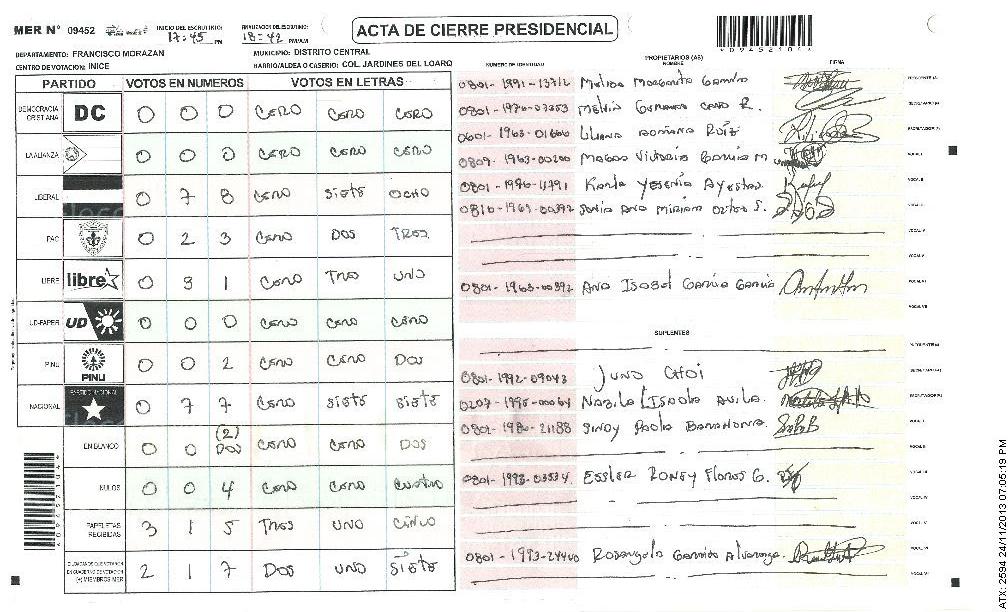 MER N° 09452 INICIO DEL ESCRUTINIO: 17:45 PM FINALIZACION DEL ESCRUTINIO: 18:42 PM/AM
ACTA DE CIERRE PRESIDENCIAL
DEPARTAMENTO: FRANCISCO MORAZAN MUNICIPIO: DISTRITO CENTRAL
CENTRO DE VOTACION: INICE BARRIO/ALDEA O CASERIO: COL JARDINES DEL LOARQ
PARTIDO VOTOS EN NUMEROS VOTOS EN LETRAS
DEMOCRACIA CRISTIANA DC 0 0 0 CERO CERO CERO
LA ALIANZA 0 0 0 CERO CERO CERO
LIBERAL 0 7 8 CERO SIETE OCHO
PAC 0 2 3 CERO DOS TRES
LIBRE libre 0 3 1 CERO TRES UNO
UD-FAPER UD 0 0 0 CERO CERO CERO
PINU PINU 0 0 2 CERO CERO DOS
NACIONAL PARTIDO NACIONAL 0 7 7 CERO SIETE SIETE
EN BLANCO 0 0 (2) DOS CERO CERO DOS
NULOS 0 0 4 CERO CERO CUATRO
PAPELETAS RECIBIDAS 3 1 5 TRES UNO CINCO
CIUDADANOS QUE VOTARON EN CUADERNO DE VOTACION (+) MIEMBROS MER 2 1 7 DOS UNO SIETE
PROPIETARIOS (AS)
NUMERO DE IDENTIDAD NOMBRE FIRMA
0801-1991-13712 Melisa Margarita PRESIDENTE (A)
Melvin R. SECRETARIO (A)
0601-1963-01600 Liliana Adriana Ruíz ESCRUTADOR (A)
0809-1963-00200 Victoria Garcia M. VOCAL I
Karla Yesenia VOCAL II
Sonia Miriam S. VOCAL III
VOCAL IV
VOCAL V
0801-1963-00392 Ana Isabel García García VOCAL VI
VOCAL VII
SUPLENTES
PRESIDENTE (A)
0801-1992-09043 JUNO CHOI SECRETARIO (A)
0207-1995-00064 Nabila Isaola Avila. ESCRUTADOR (A)
0801-1980-21188 Sindy Paola Barahona. VOCAL I
VOCAL II
0801-1993-03534 Essler Roney Flores G. VOCAL III
VOCAL IV
VOCAL V
0801-1993-24440 Rosangela Garrido Alvarenga. VOCAL VI
VOCAL VII
ATX: 2594 24/11/2013 07:05:19 PM